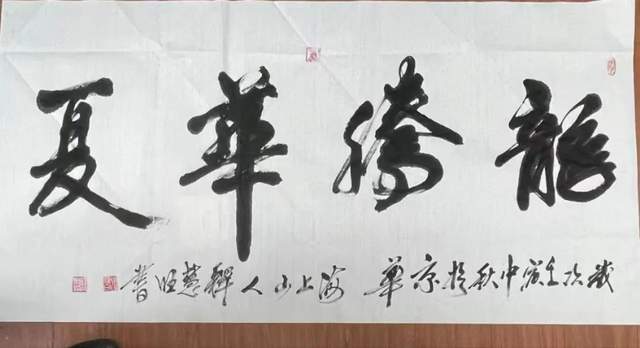 龍騰華夏
歲次壬寅中秋於京華 海上山人釋慧旺書